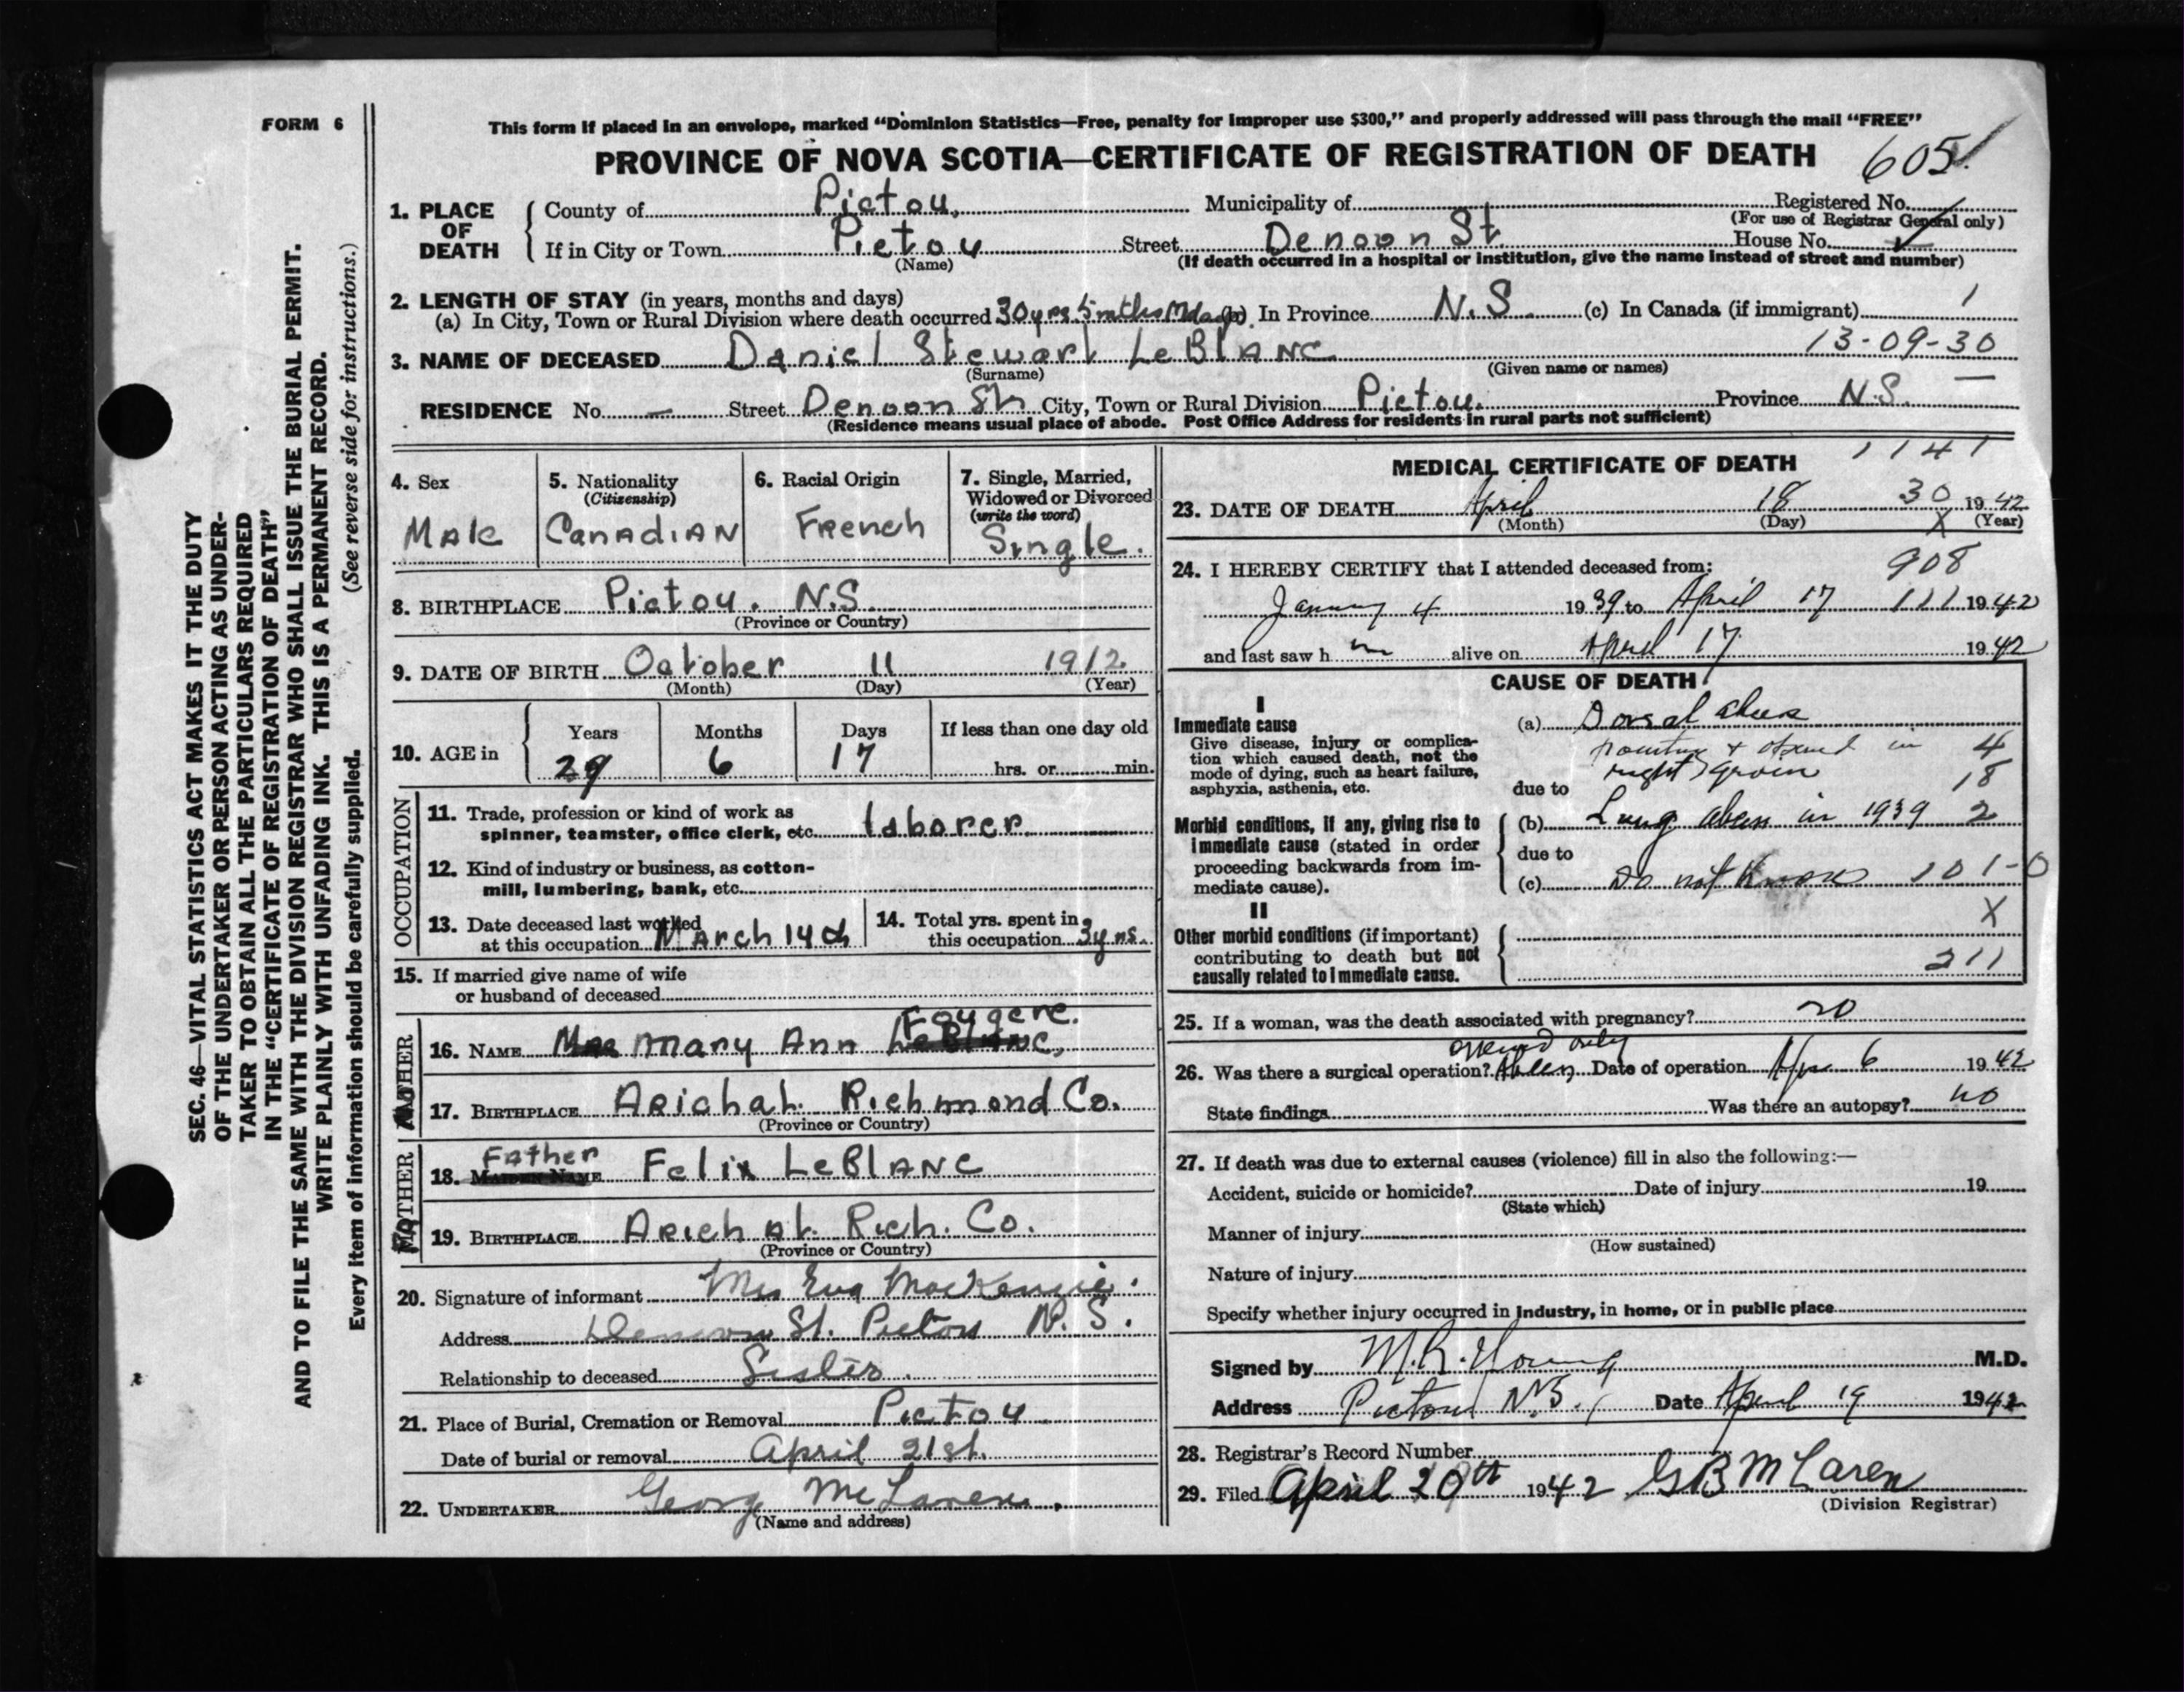 FORM 6
This form if placed in an envelope, marked “Dominion Statistics—Free, penalty for improper use $300,” and properly addressed will pass through the mail “FREE”
PROVINCE OF NOVA SCOTIA—CERTIFICATE OF REGISTRATION OF DEATH 605
1. PLACE OF DEATH
County of Pictou, Municipality of Registered No.
(For use of Registrar General only)
If in City or Town Pictou Street Denoon St House No.
(Name) (If death occurred in a hospital or institution, give the name instead of street and number)
2. LENGTH OF STAY (in years, months and days)
(a) In City, Town or Rural Division where death occurred 30 yrs 5 mths (b) In Province N.S. (c) In Canada (if immigrant) 1
13-09-30
3. NAME OF DECEASED Daniel Stewart LeBlanc
(Surname) (Given name or names)
RESIDENCE No. — Street Denoon St City, Town or Rural Division Pictou. Province N.S.
(Residence means usual place of abode. Post Office Address for residents in rural parts not sufficient)
4. Sex Male
5. Nationality (Citizenship) Canadian
6. Racial Origin French
7. Single, Married, Widowed or Divorced (write the word) Single.
8. BIRTHPLACE Pictou. N.S.
(Province or Country)
9. DATE OF BIRTH October 11 1912
(Month) (Day) (Year)
10. AGE in Years Months Days If less than one day old
29 6 17 hrs. or min.
OCCUPATION
11. Trade, profession or kind of work as
spinner, teamster, office clerk, etc. laborer
12. Kind of industry or business, as cotton-
mill, lumbering, bank, etc.
13. Date deceased last worked
at this occupation March 14
14. Total yrs. spent in
this occupation 3 yrs.
15. If married give name of wife
or husband of deceased
MOTHER
Fougere.
16. NAME Mrs Mary Ann LeBlanc,
17. BIRTHPLACE Arichat Richmond Co.
(Province or Country)
FATHER
Father
18. MAIDEN NAME Felix LeBlanc
19. BIRTHPLACE Arichat. Rich. Co.
(Province or Country)
20. Signature of informant Mrs Eva MacKenzie.
Address Denoon St. Pictou N.S.
Relationship to deceased Sister.
21. Place of Burial, Cremation or Removal Pictou
Date of burial or removal April 21st.
22. UNDERTAKER George McLaren.
(Name and address)
MEDICAL CERTIFICATE OF DEATH 1141
23. DATE OF DEATH April 18 30 1942
(Month) (Day) X (Year)
24. I HEREBY CERTIFY that I attended deceased from: 908
January 4 1939 to April 17 111 1942
and last saw h m alive on April 17 1942
CAUSE OF DEATH
I
Immediate cause
Give disease, injury or complica-
tion which caused death, not the
mode of dying, such as heart failure,
asphyxia, asthenia, etc.
(a) Dorsal
pointing & opened in 4
due to right groin 18
Morbid conditions, if any, giving rise to
immediate cause (stated in order
proceeding backwards from im-
mediate cause).
(b) Lung in 1939 2
due to
(c) Do not know 101-0
II X
Other morbid conditions (if important)
contributing to death but not
causally related to immediate cause. 211
25. If a woman, was the death associated with pregnancy? no
opened only
26. Was there a surgical operation? Date of operation Apr 6 1942
State findings Was there an autopsy? no
27. If death was due to external causes (violence) fill in also the following:—
Accident, suicide or homicide? Date of injury 19
(State which)
Manner of injury
(How sustained)
Nature of injury
Specify whether injury occurred in industry, in home, or in public place
Signed by M.R. Young M.D.
Address Pictou N.S., Date April 19 1942
28. Registrar's Record Number
29. Filed April 20th 1942 G B McLaren
(Division Registrar)
SEC. 46—VITAL STATISTICS ACT MAKES IT THE DUTY
OF THE UNDERTAKER OR PERSON ACTING AS UNDER-
TAKER TO OBTAIN ALL THE PARTICULARS REQUIRED
IN THE “CERTIFICATE OF REGISTRATION OF DEATH”
AND TO FILE THE SAME WITH THE DIVISION REGISTRAR WHO SHALL ISSUE THE BURIAL PERMIT.
WRITE PLAINLY WITH UNFADING INK. THIS IS A PERMANENT RECORD.
(See reverse side for instructions.)
Every item of information should be carefully supplied.